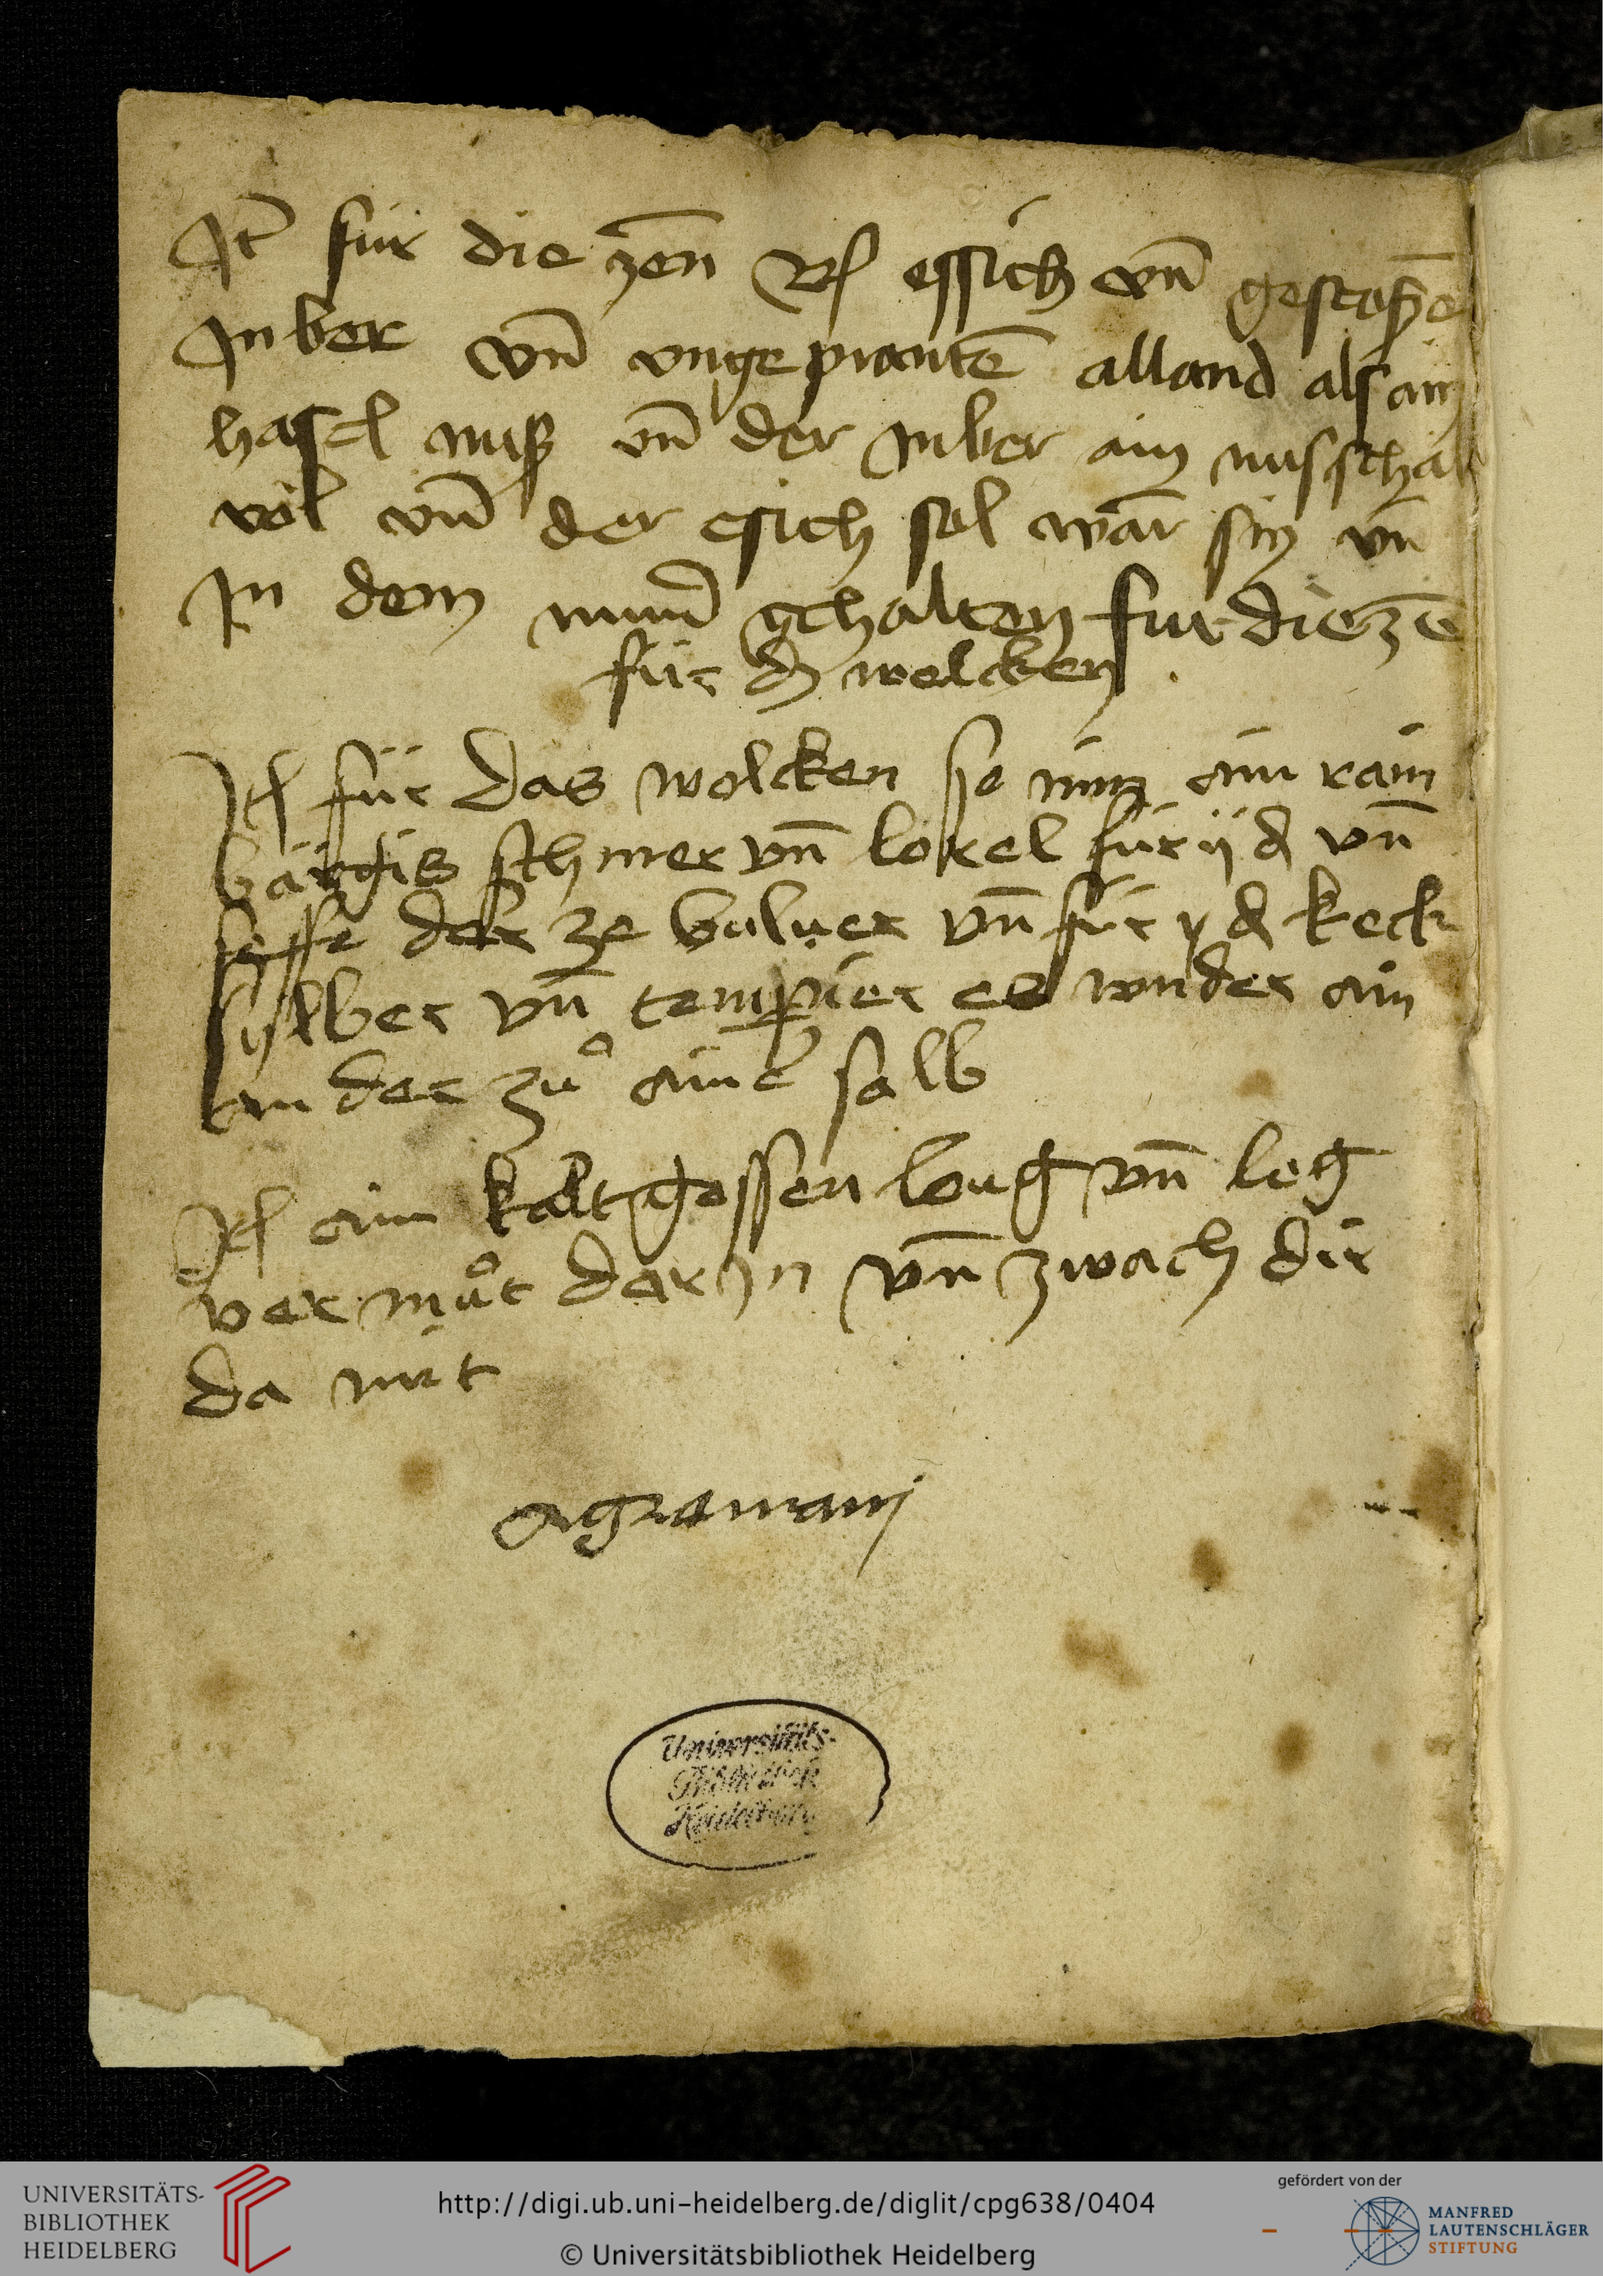 Jt̄ für die zen̄ Rſ eſſich vn̄
Jnber vn̄ vngeprantē alland alſ ain
haſel nuſz vn̄ der Jnber ain nuſſchal
vol vn̄ der eſich ſol warm̄ ſin vn̄
Jn dem mund gehalten fur die zē
für dz welcken
Jtſ für das wolcken ſo nim ain rain
bärgis ſchmer vn̄ lorel für ij d vn̄
der ze buluer vn̄ für d keck
ſylber vn̄ temperier es vnder ain
an der zuͦ ainer ſalb
Jtſ ain kalt goſſen loug vn̄ leg
ver muͦt dar Jn vn̄ zwach dir
da mit
Universitäts-
Bibliothek
Heidelberg
UNIVERSITÄTS-
BIBLIOTHEK
HEIDELBERG
http://digi.ub.uni-heidelberg.de/diglit/cpg638/0404
© Universitätsbibliothek Heidelberg
gefördert von der
MANFRED
LAUTENSCHLÄGER
STIFTUNG